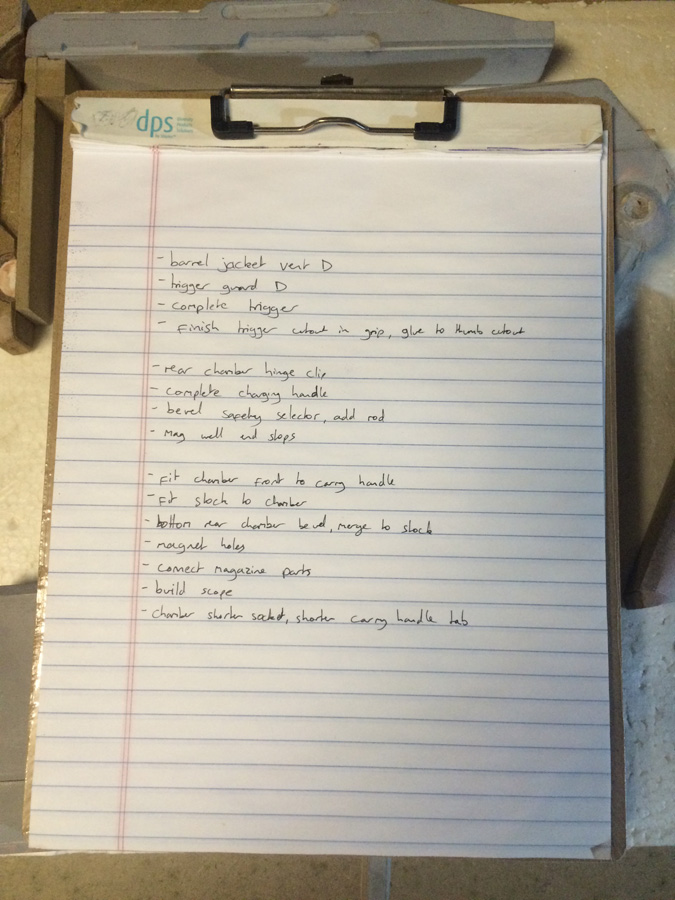 dps
- barrel jacket vent D
- trigger guard D
- complete trigger
- Finish trigger cutout in grip, glue to thumb cutout
- rear chamber hinge clip
- complete charging handle
- bevel safety selector, add rod
- Mag well end stops
- Fit chamber front to carry handle
- Fit stock to chamber
- bottom rear chamber bevel, merge to stock
- magnet holes
- connect magazine parts
- build scope
- chamber shorten socket, shorten carry handle tab